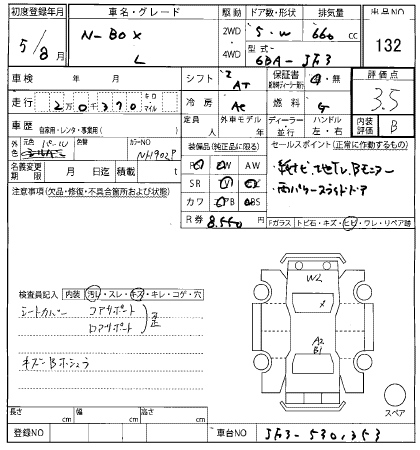 初度登録年月
車名・グレード
駆動
ドア数・形状
排気量
出品NO
5/8月
N-BOX
L
2WD
4WD
5・W
660 cc
132
型式
6BA- JF3
車検 年 月
シフト
AT
保証書
有・無
評価点
3.5
走行 20370 キロ マイル
冷房
AC
燃料
内装評価 B
車歴
自家用・レンタ・事業用( )
定員 人
外車モデル 年
ディーラー 並行
ハンドル 左・右
外色
元色 パール
色替
カラーNO NH902P
装備品(純正品に限る)
セールスポイント(正常に作動するもの)
名義変更期限 月 日迄
積載 t
AW
SR
カワ
ABS
R券 8,550
純ナビ、地TV、Bモニター
両パワースライドドア
注意事項(欠品・修復・不具合箇所および状態)
Fガラス トビ石・キズ・ヒビ・ワレ・リペア跡
W2
X
A2
B1
検査員記入 内装 汚れ・スレ・キズ・キレ・コゲ・穴
シートカバー
コアサポート
ロアサポート
歪
キズ
スペア
長さ cm
幅 cm
高さ cm
登録NO
車台NO
JF3-5301353